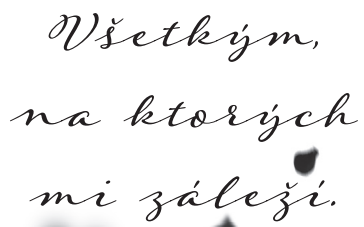 Všetkým,
na ktorých
mi záleží.